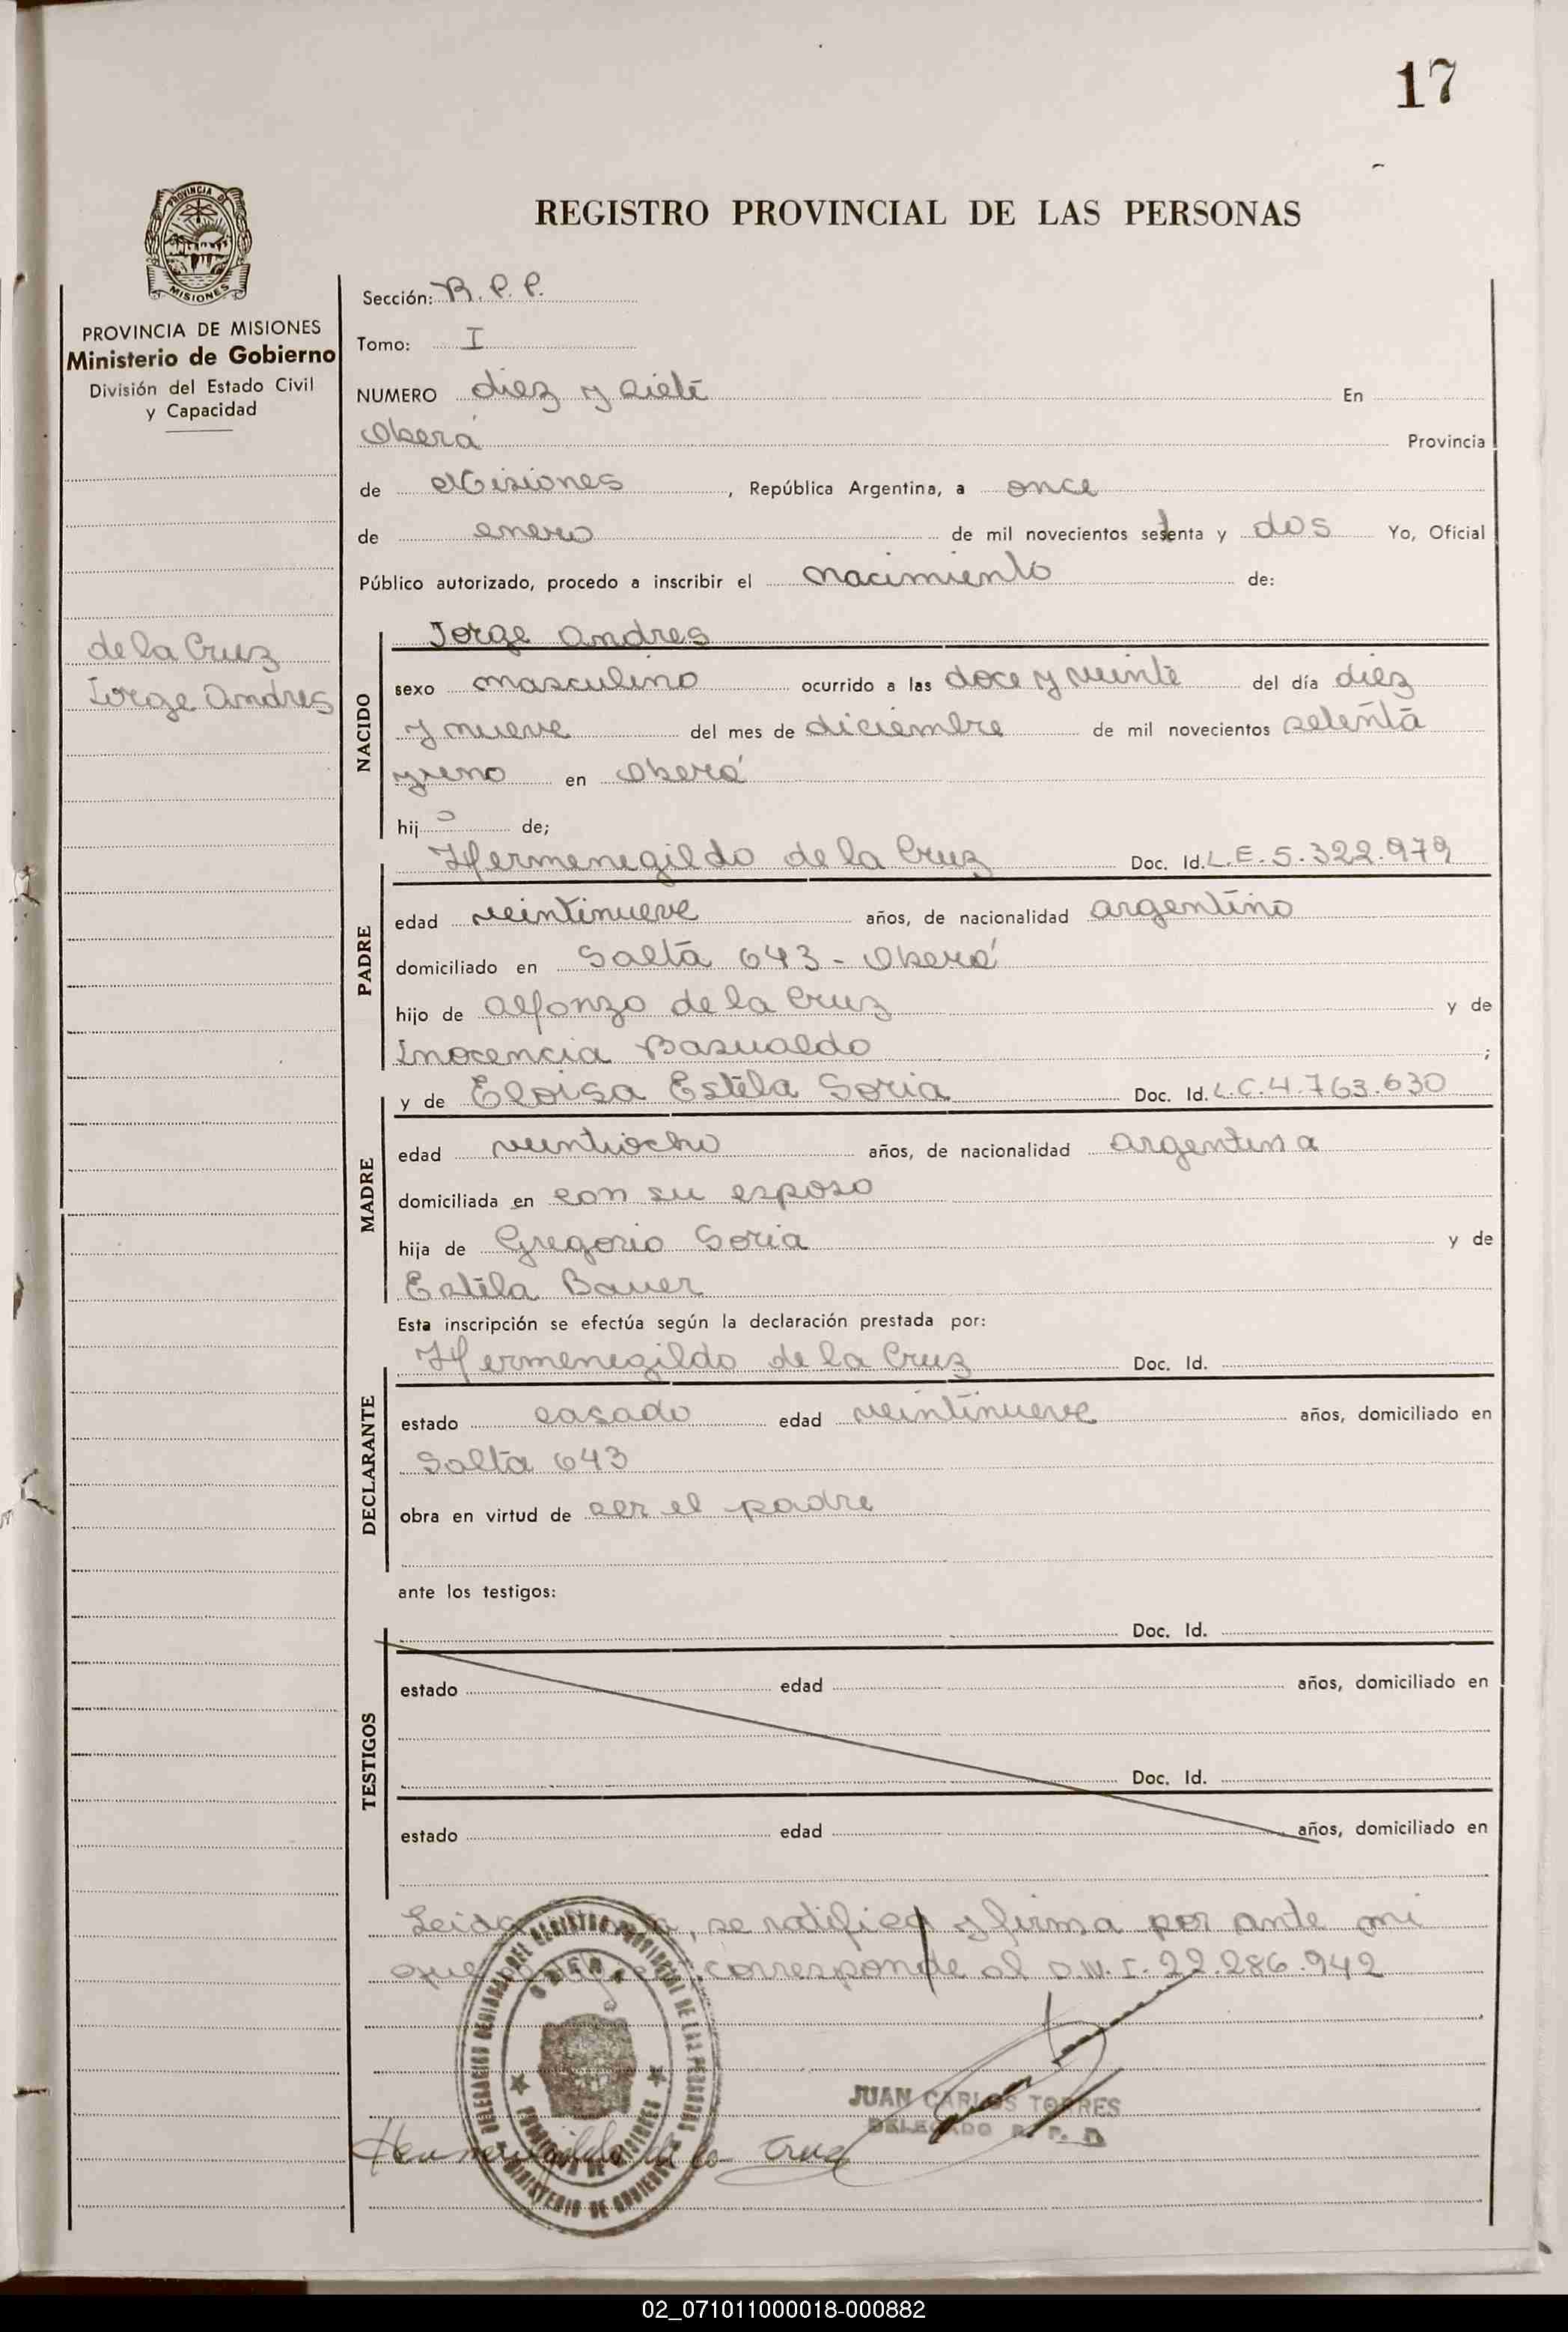 17
REGISTRO PROVINCIAL DE LAS PERSONAS
PROVINCIA DE
MISIONES
PROVINCIA DE MISIONES
Ministerio de Gobierno
División del Estado Civil
y Capacidad
de la Cruz
Jorge Andres
Sección: R.P.P.
Tomo: I
NUMERO diez y siete En
Oberá Provincia
de Misiones, República Argentina, a once
de enero de mil novecientos setenta y dos Yo, Oficial
Público autorizado, procedo a inscribir el nacimiento de:
NACIDO
Jorge Andres
sexo masculino ocurrido a las doce y veinte del día diez
y nueve del mes de diciembre de mil novecientos setenta
y uno en Oberá
hijo de;
PADRE
Hermenegildo de la Cruz Doc. Id. L.E. 5.322.979
edad veintinueve años, de nacionalidad argentino
domiciliado en Salta 643 - Oberá
hijo de Alfonzo de la Cruz y de
Inocencia Basualdo ;
MADRE
y de Eloisa Estela Soria Doc. Id. L.C. 4.763.630
edad veintiocho años, de nacionalidad argentina
domiciliada en con su esposo
hija de Gregorio Soria y de
Estela Bauer
Esta inscripción se efectúa según la declaración prestada por:
DECLARANTE
Hermenegildo de la Cruz Doc. Id.
estado casado edad veintinueve años, domiciliado en
Salta 643
obra en virtud de ser el padre
ante los testigos:
TESTIGOS
Doc. Id.
estado edad años, domiciliado en
Doc. Id.
estado edad años, domiciliado en
Leida, se ratifica y firma por ante mi
que corresponde al D.N.I. 22.286.942
JUAN CARLOS TORRES
DELEGADO R. P. P.
Hermenegildo de la Cruz
DEL REGISTRO PROVINCIAL DE LAS PERSONAS
OBERA
MINISTERIO DE GOBIERNO
02_071011000018-000882